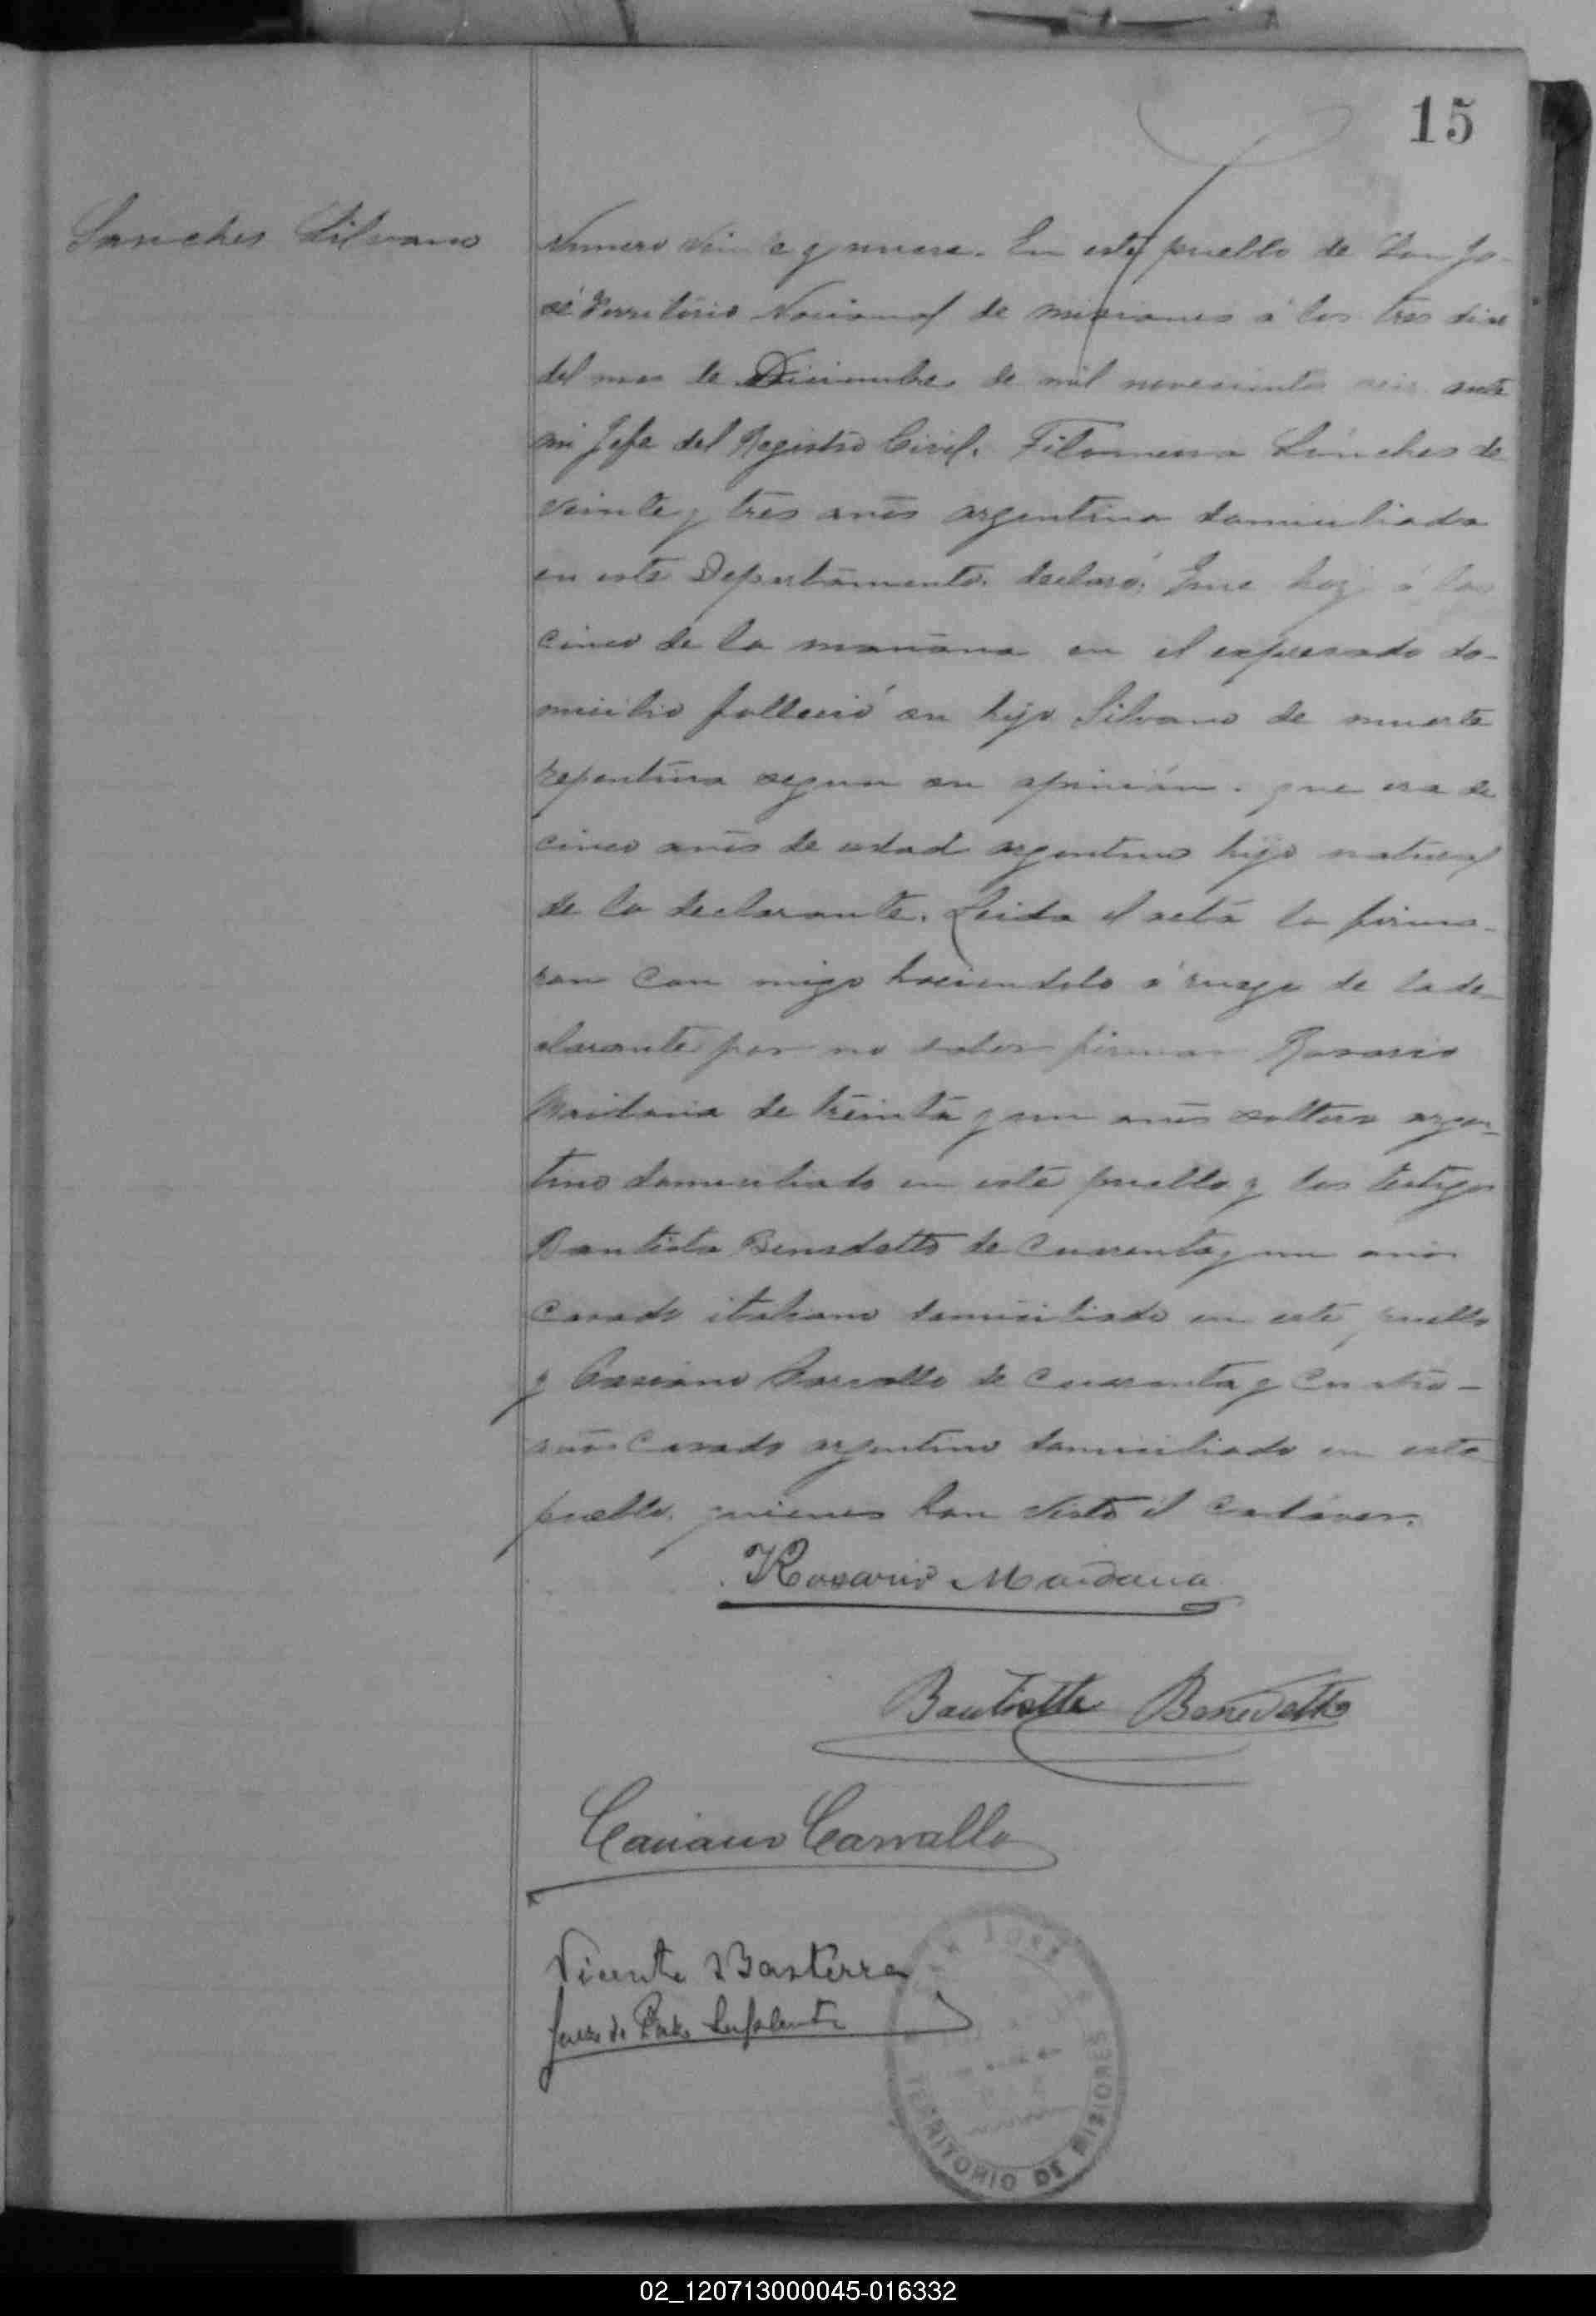 15
Sanches Silvano
Numero Veinte y nueve. En este pueblo de San Jo-
sé Territorio Nacional de Misiones á los tres dias
del mes de Diciembre de mil novecientos seis ante
mi Jefe del Registro Civil. Filomena Sánches de
veinte y tres años argentina domiciliada
en este Departamento. declaró; Que hoy á las
cinco de la mañana en el expresado do-
micilio falleció su hijo Silvano de muerte
repentina segun su opinión. que era de
cinco años de edad argentino hijo natural
de la declarante. Leida el acta la firma-
ron con migo haciendolo á ruego de la de-
clarante por no saber firmar Rosario
Maidana de treinta y un años soltero argen-
tino domiciliado en este pueblo y los testigos
Bautista Benedetto de cuarenta y un años
casado italiano domiciliado en este pueblo
y Casiano Carvallo de cuarenta y cuatro-
años casado argentino domiciliado en este
pueblo. quienes han visto el cadaver.
Rosario Maidana
Bautista Benedetto
Casiano Carvallo
Vicente Basterra
Juez de Paz Suplente
SAN JOSÉ
TERRITORIO DE MISIONES
02_120713000045-016332